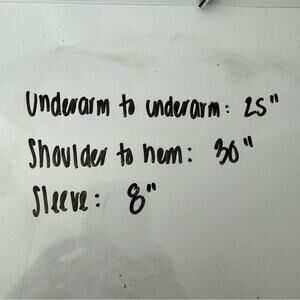 Underarm to underarm: 25"
Shoulder to hem: 30"
Sleeve: 8"